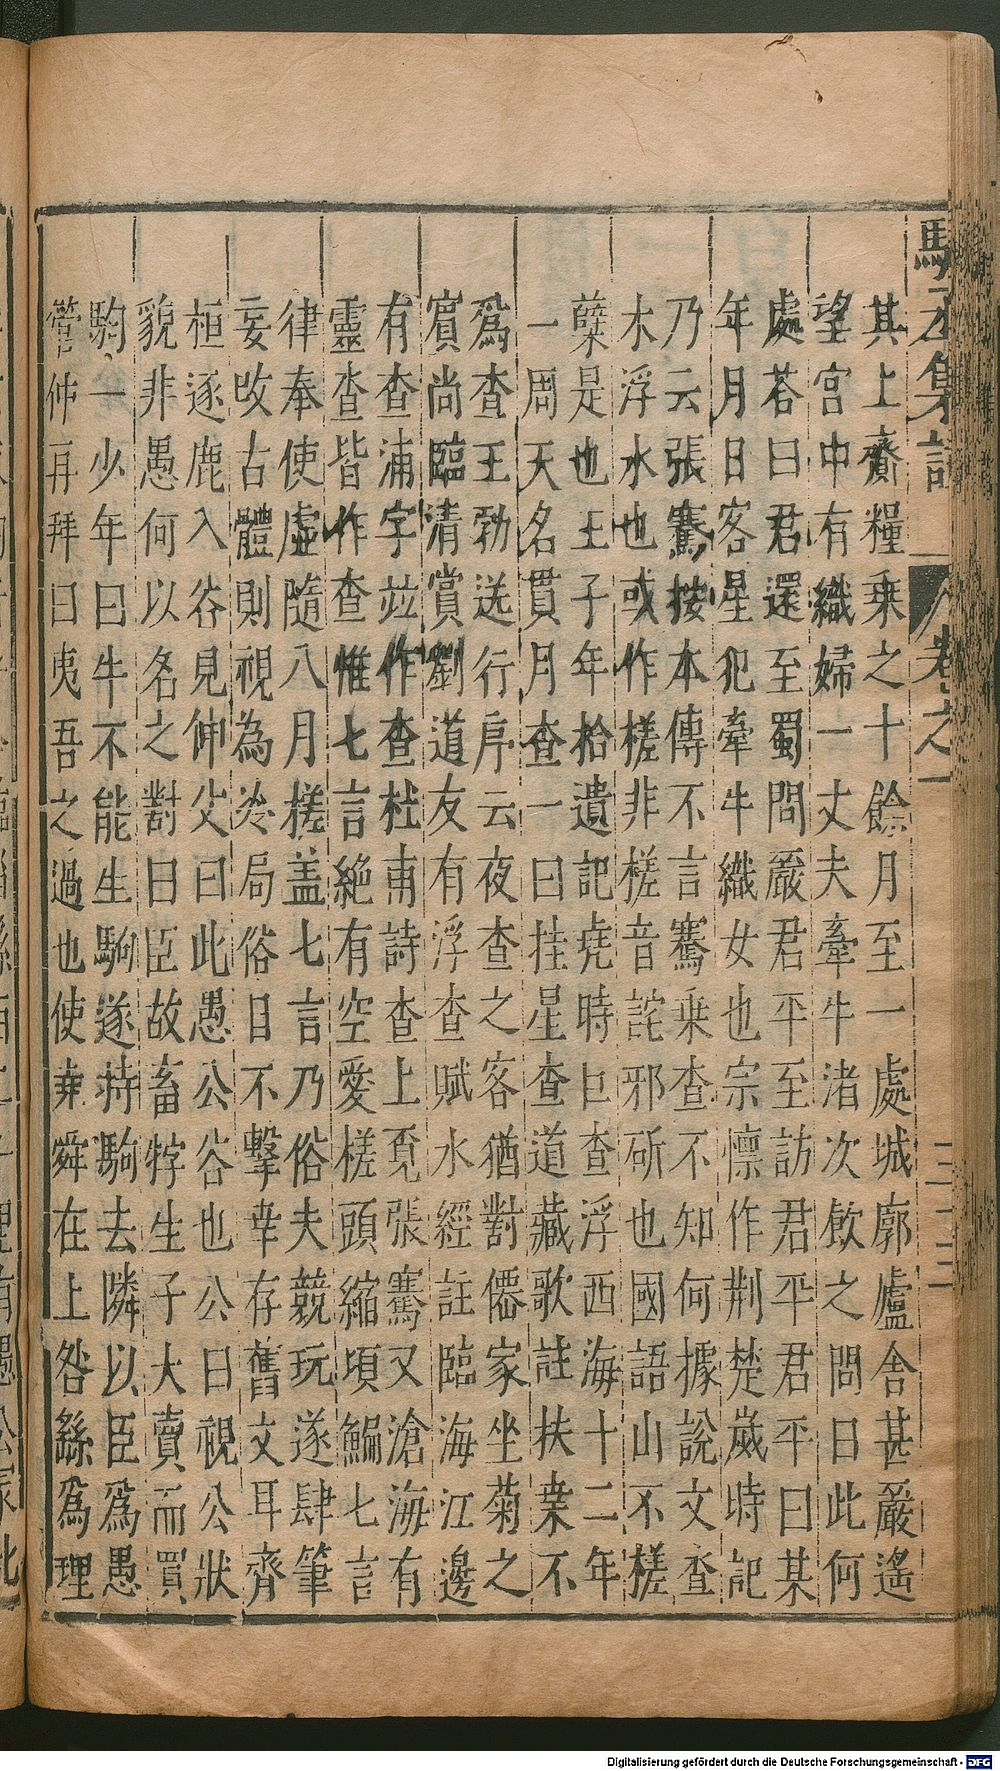 駱丞集註 卷之一
其上齎糧乗之十餘月至一處城廓廬舍甚嚴遙
望宮中有織婦一丈夫牽牛渚次飲之問曰此何
處荅曰君還至蜀問嚴君平至訪君平君平曰某
年月日客星犯牽牛織女也宗懍作荆楚歲時記
乃云張騫按本傳不言騫乗查不知何據説文查
木浮水也或作槎非槎音詫邪斫也國語山不槎
蘖是也王子年拾遺記堯時巨查浮西海十二年
一周天名貫月查一曰挂星查道藏歌註扶桒不
爲查王勃送行序云夜查之客猶對僊家坐菊之
賓尚臨清賞劉道友有浮查賦水經註臨海江邊
有查浦字竝作查杜甫詩查上覓張騫又滄海有
靈查皆作查惟七言絶有空愛槎頭縮頃鯿七言
律奉使虛隨八月槎盖七言乃俗夫競玩遂肆筆
妄改古體則視為尖局俗目不擊幸存舊文耳齊
桓逐鹿入谷見仲父曰此愚公谷也公曰視公狀
貌非愚何以名之對曰臣故畜牸生子大賣而買
駒一少年曰牛不能生駒遂持駒去隣以臣爲愚
管仲再拜曰夷吾之過也使堯舜在上咎繇爲理
Digitalisierung gefördert durch die Deutsche Forschungsgemeinschaft - DFG